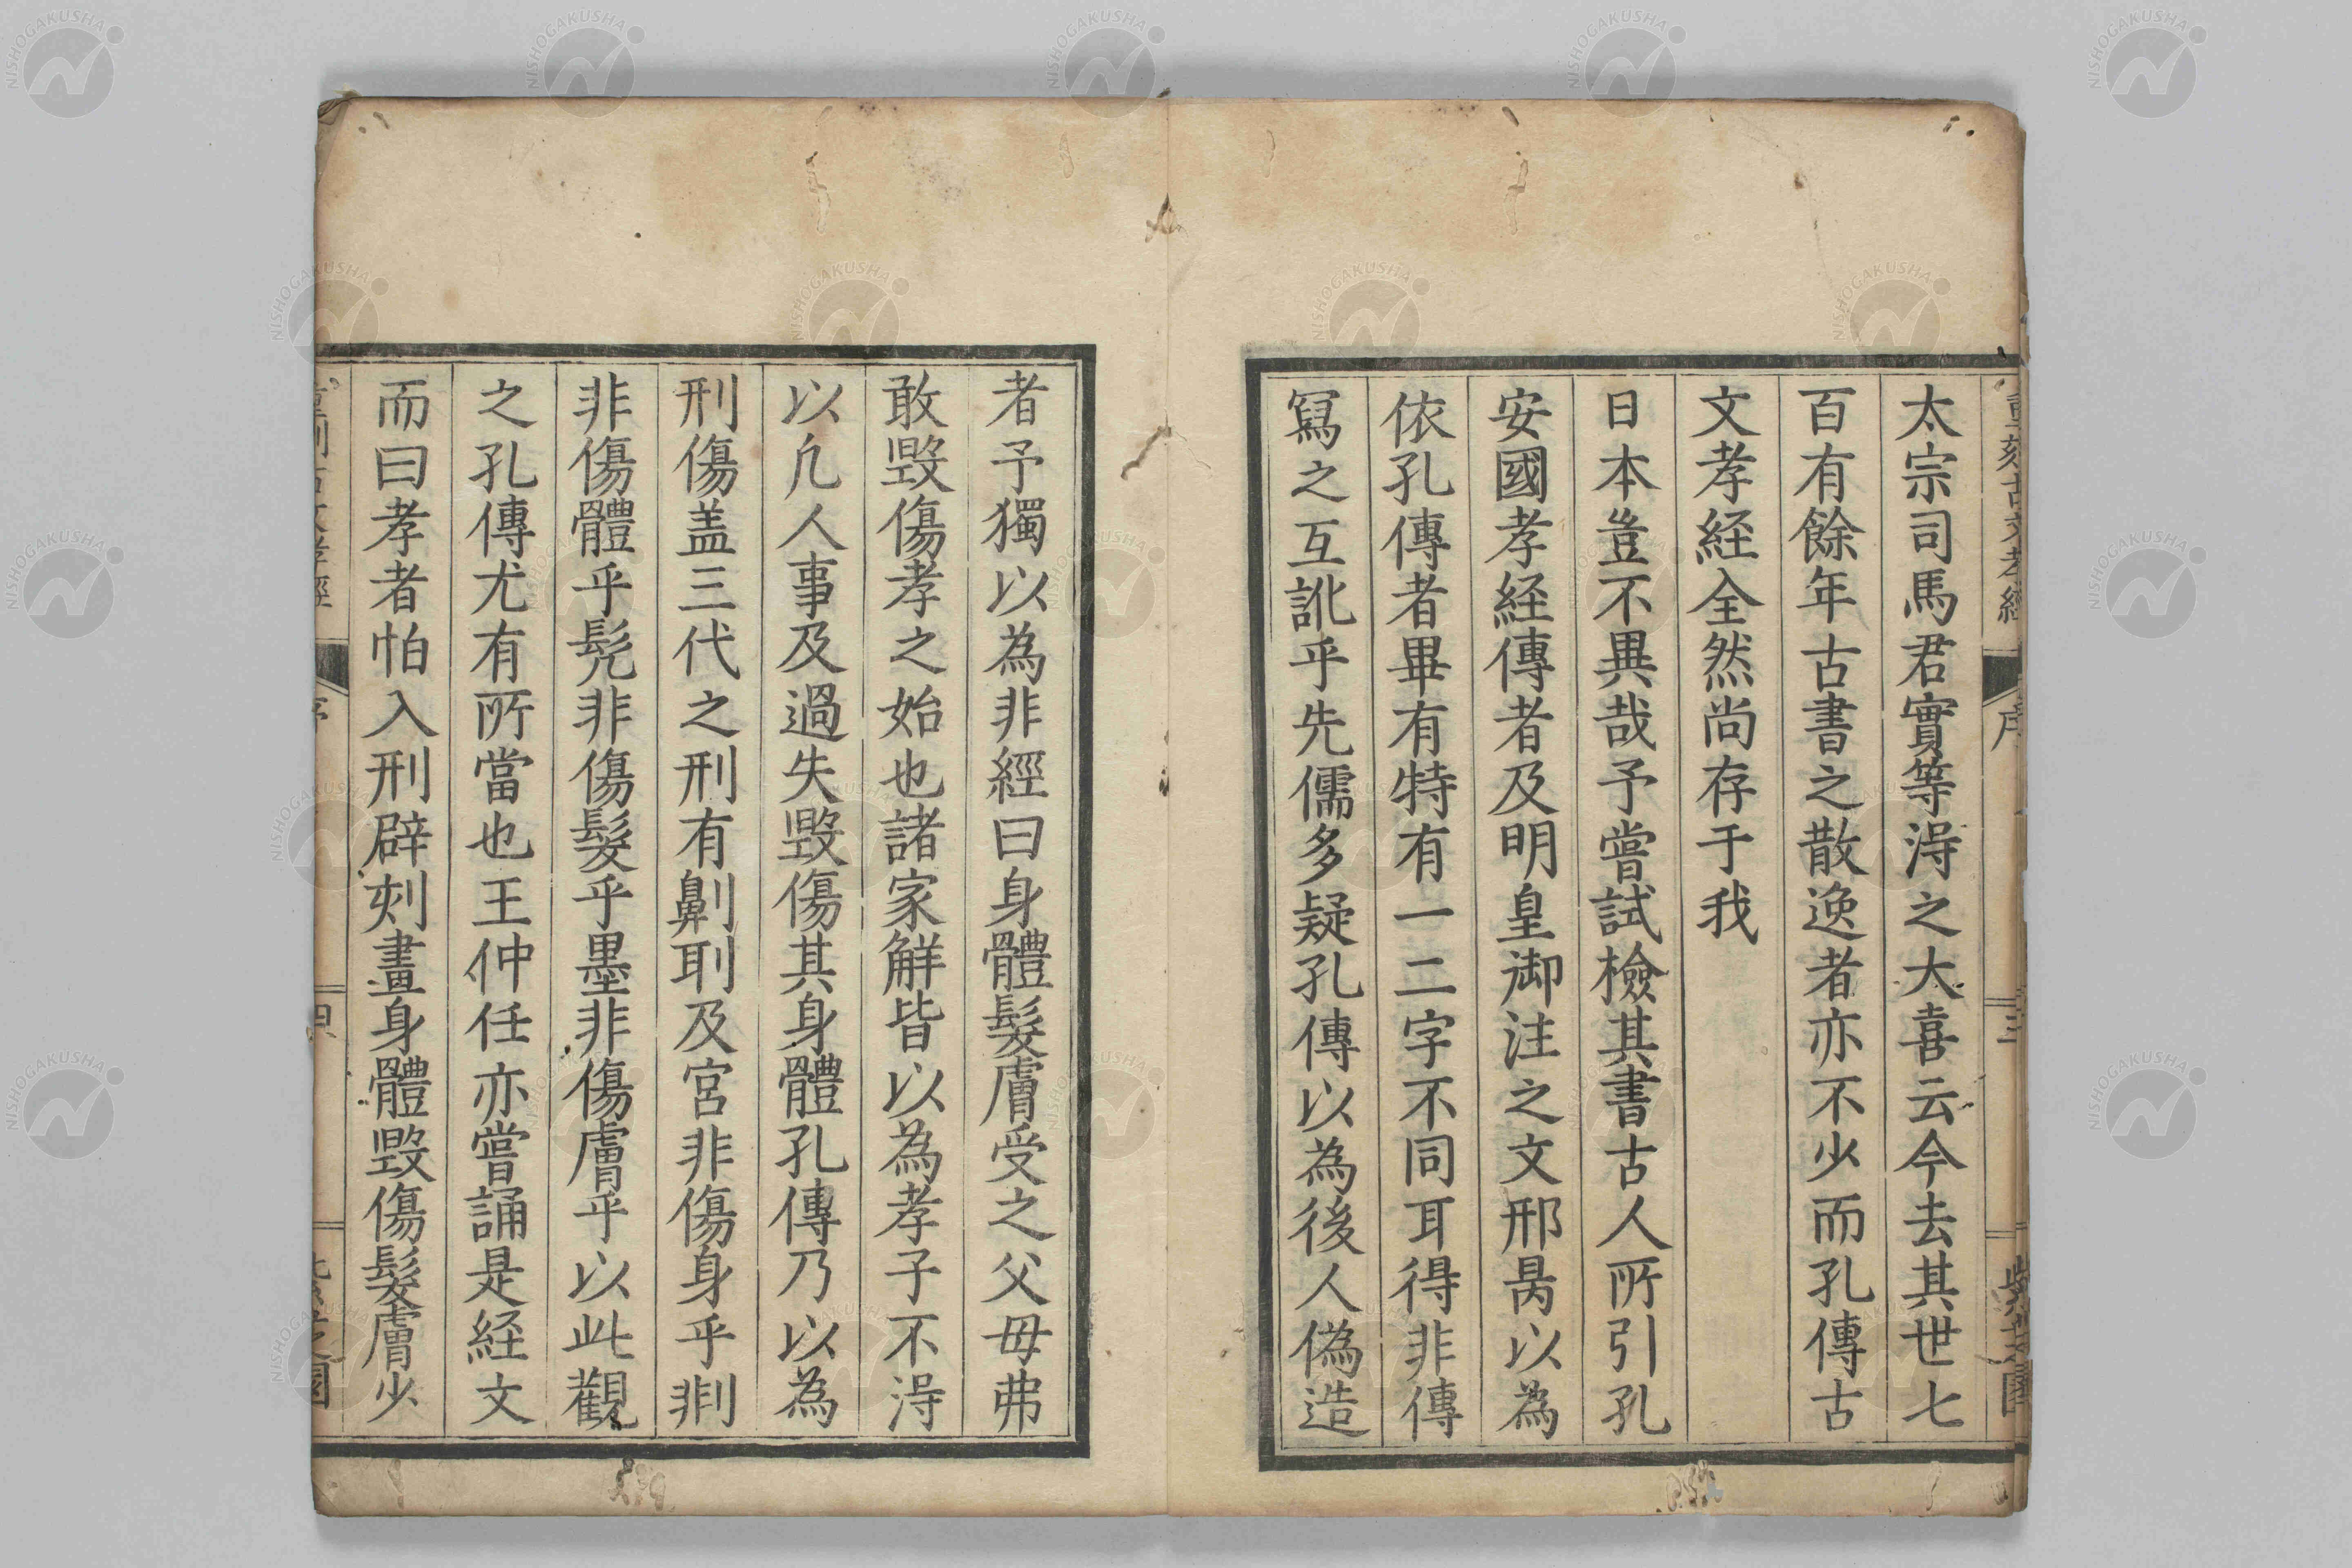 重刻古文孝經 序 三 紫芝園
太宗司馬君實等淂之大喜云今去其世七
百有餘年古書之散逸者亦不少而孔傳古
文孝経全然尚存于我
日本豈不異哉予嘗試檢其書古人所引孔
安國孝経傳者及明皇御注之文邢昺以為
依孔傳者畢有特有一二字不同耳得非傳
冩之互訛乎先儒多疑孔傳以為後人偽造
者予獨以為非經曰身體髮膚受之父母弗
敢毀傷孝之始也諸家解皆以為孝子不淂
以凢人事及過失毀傷其身體孔傳乃以為
刑傷盖三代之刑有劓刵及宮非傷身乎剕
非傷體乎髡非傷髮乎墨非傷膚乎以此觀
之孔傳尤有所當也王仲任亦嘗誦是経文
而曰孝者怕入刑辟刻畫身體毀傷髮膚少
NISHOGAKUSHA